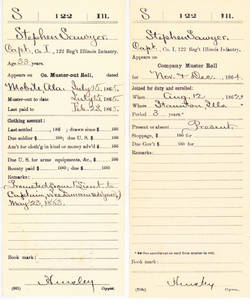 S | 122 | Ill.
Stephen Sawyer,
Capt., Co. I, 122 Reg't Illinois Infantry.
Age 33 years.
Appears on Co. Muster-out Roll, dated
Mobile, Ala., July 15, 1865.
Muster-out to date July 15, 1865.
Last paid to Feb. 28, 1865.
Clothing account:
Last settled , 186 ; drawn since $ 100
Due soldier $ 100; due U. S. $ 100
Am't for cloth'g in kind or money adv'd $ 100
Due U. S. for arms, equipments, &c., $ 100
Bounty paid $ 100; due $ 100
Remarks:
Promoted from Lieut to
Captain
May 23, 1863.
Book mark:
(361) Copyist.
S | 122 | Ill.
Stephen Sawyer
Capt., Co. I, 122 Reg't Illinois Infantry.
Appears on
Company Muster Roll
for Nov. & Dec., 1864.
Joined for duty and enrolled:
When Aug. 12, 1862
Where Staunton, Ills.
Period 3 years.
Present or absent Present
Stoppage, $ 100 for
Due Gov't $ 100 for
Remarks:
Book mark:
Copyist.